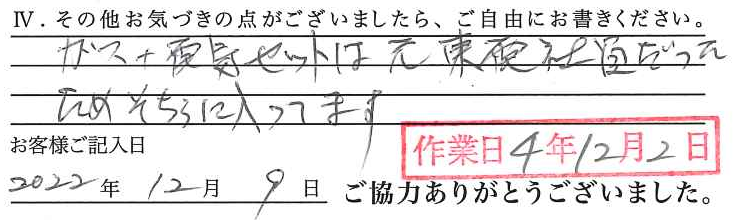 Ⅳ．その他お気づきの点がございましたら、ご自由にお書きください。
ガス＋電気セットは元東電社員だった
ためそちらに入ってます
お客様ご記入日
作業日4年12月2日
2022年 12月 9日 ご協力ありがとうございました。